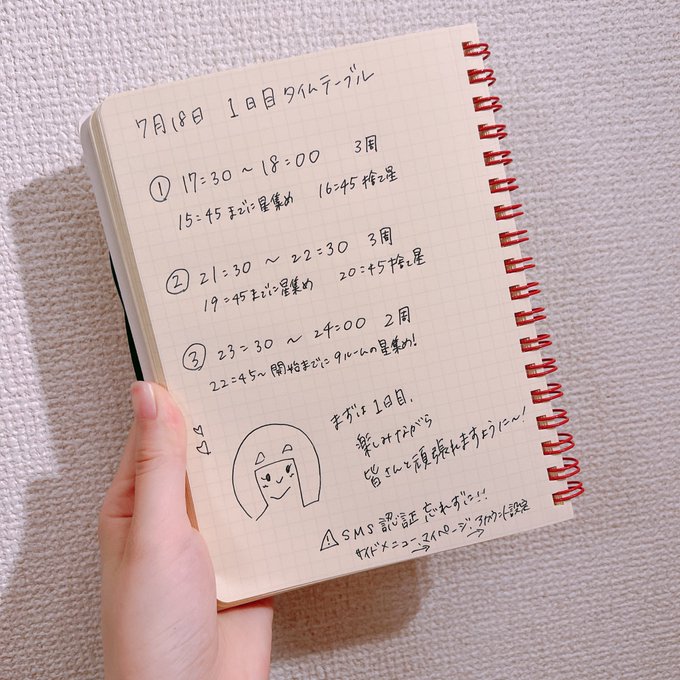 7月18日 1日目タイムテーブル
① 17:30 ~ 18:00 3周
15:45までに星集め 16:45捨て星
② 21:30 ~ 22:30 3周
19:45までに星集め 20:45捨て星
③ 23:30 ~ 24:00 2周
22:45~開始までに9ルームの星集め!
まずは1日目、
楽しみながら
皆さんと頑張れますように~!
⚠SMS認証忘れずに!!
サイドメニュー→マイページ→アカウント設定